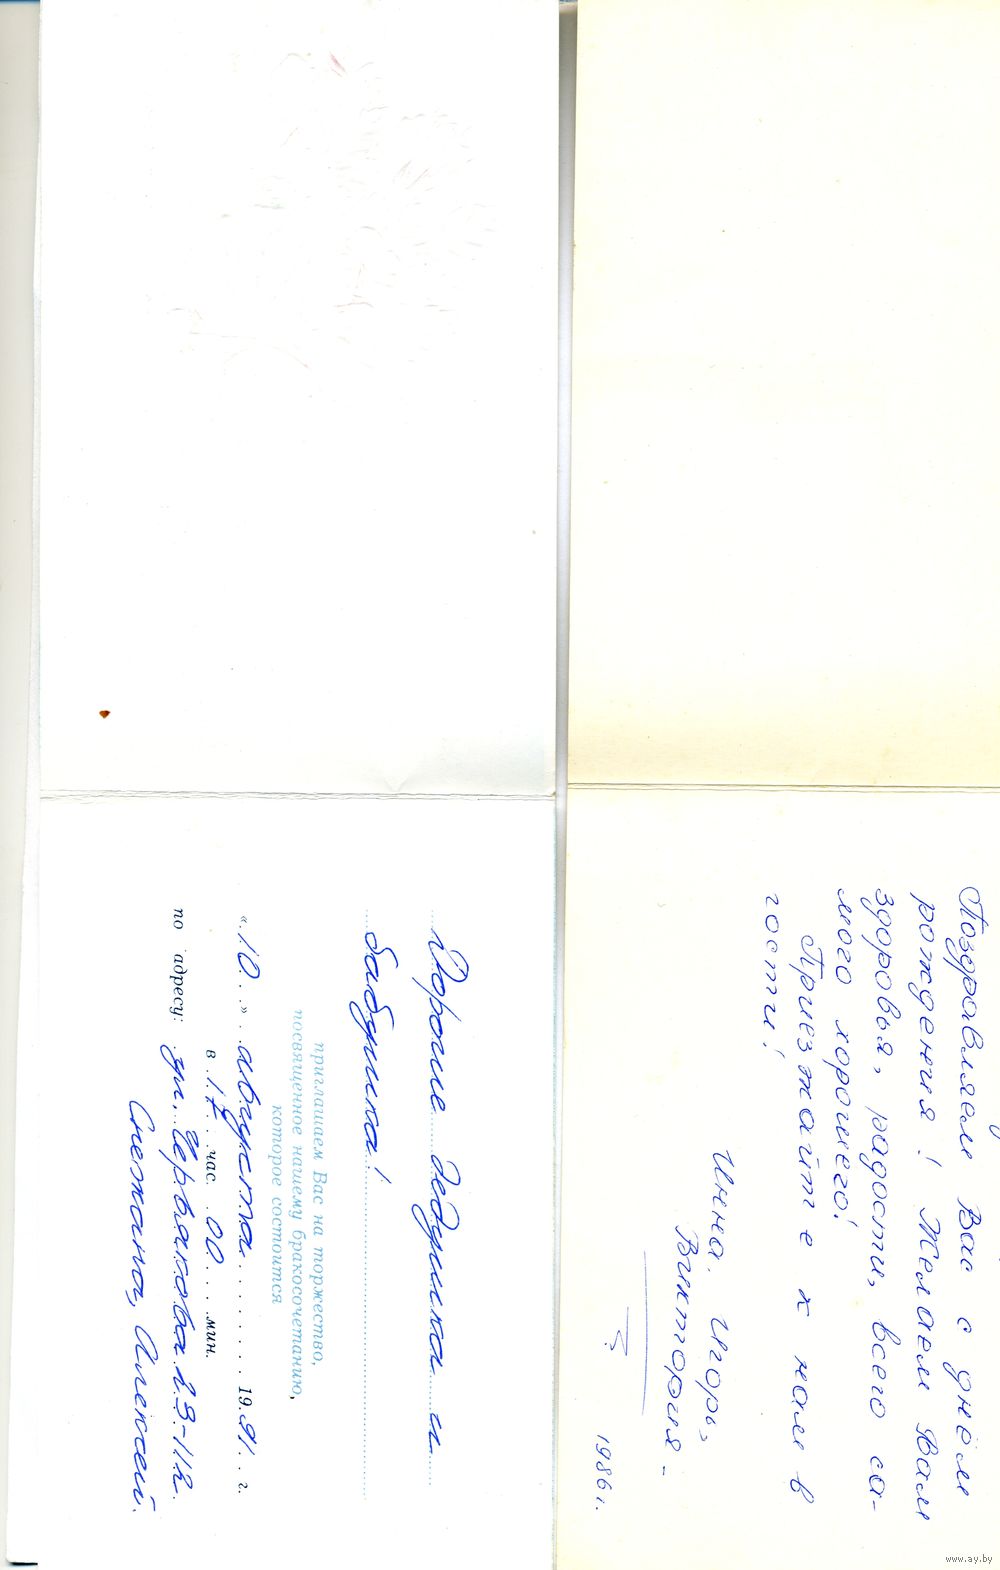 Поздравляем Вас с днём
рождения! Желаем Вам
здоровья, радости, всего са-
мого хорошего!
Приезжайте к нам в
гости!
Инна, Игорь,
Виктория -
1986 г.
Дорогие дедушка и
бабушка!
приглашаем Вас на торжество,
посвященное нашему бракосочетанию,
которое состоится
«10» августа 1991 г.
в 17 час. 00 мин.
по адресу: ул. Червякова 23-112.
Снежана, Алексей.
www.ay.by